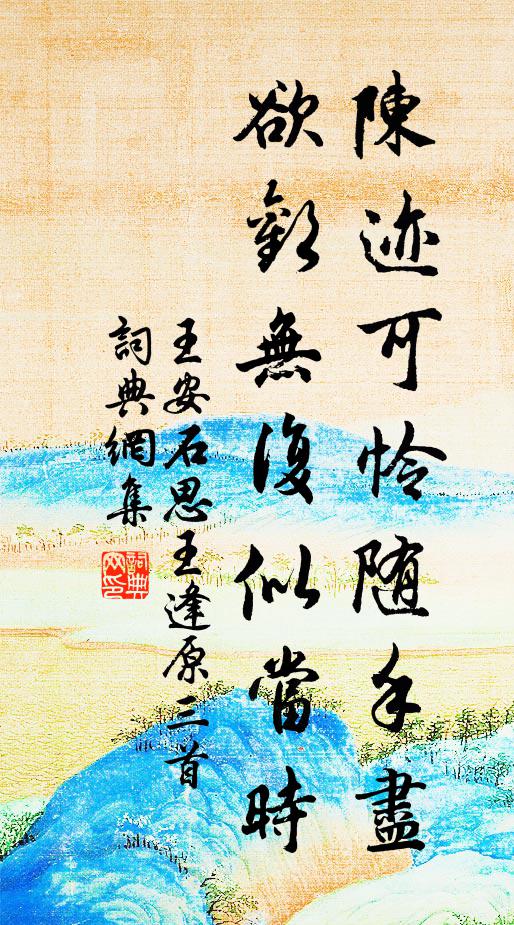 陳迹可怜随手盡
欲歡無復似當時
王安石思王逢原三首
詞典網集
詞典網印